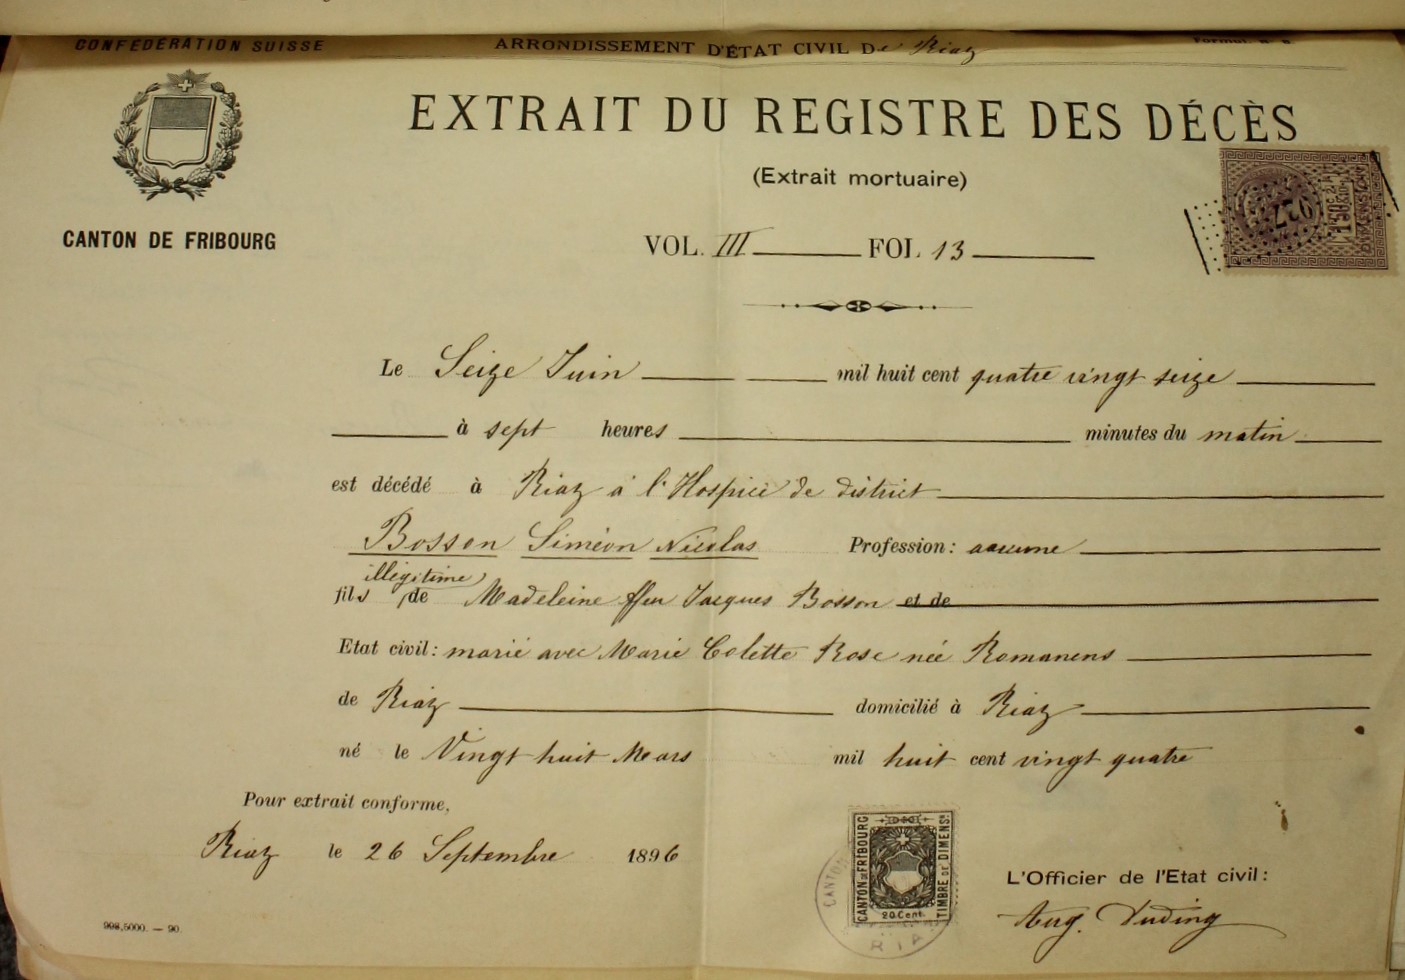 CONFÉDÉRATION SUISSE
ARRONDISSEMENT D'ÉTAT CIVIL De Riaz
EXTRAIT DU REGISTRE DES DÉCÈS
(Extrait mortuaire)
CANTON DE FRIBOURG
VOL. III FOL 13
Le Seize Juin mil huit cent quatre vingt seize
à sept heures minutes du matin
est décédé à Riaz à l'Hospice de district
Bosson Siméon Nicolas Profession: aucune
illégitime
fils de Madeleine ffeu Jacques Bosson et de
Etat civil: marié avec Marie Colette Rose née Romanens
de Riaz domicilié à Riaz
né le Vingt huit Mars mil huit cent vingt quatre
Pour extrait conforme,
Riaz le 26 Septembre 1896
CANTON DE FRIBOURG
TIMBRE DE DIMENSN.
20 Cent.
CANTON
RIA
L'Officier de l'Etat civil:
Aug. Duding
908,5000. — 90.